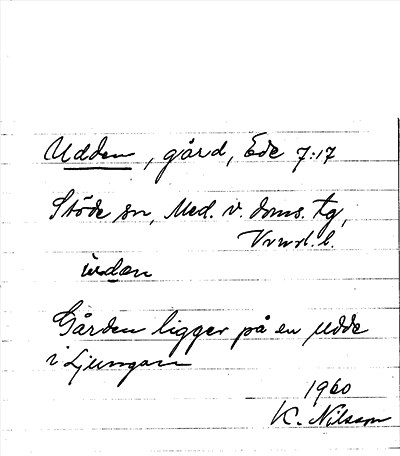 Udden, gård, Ede 7:17
Stöde sn, Med. v. doms. tg,
Vrnrl. l.
ùdan
Gården ligger på en udde
i Ljungan
1960
K. Nilsson